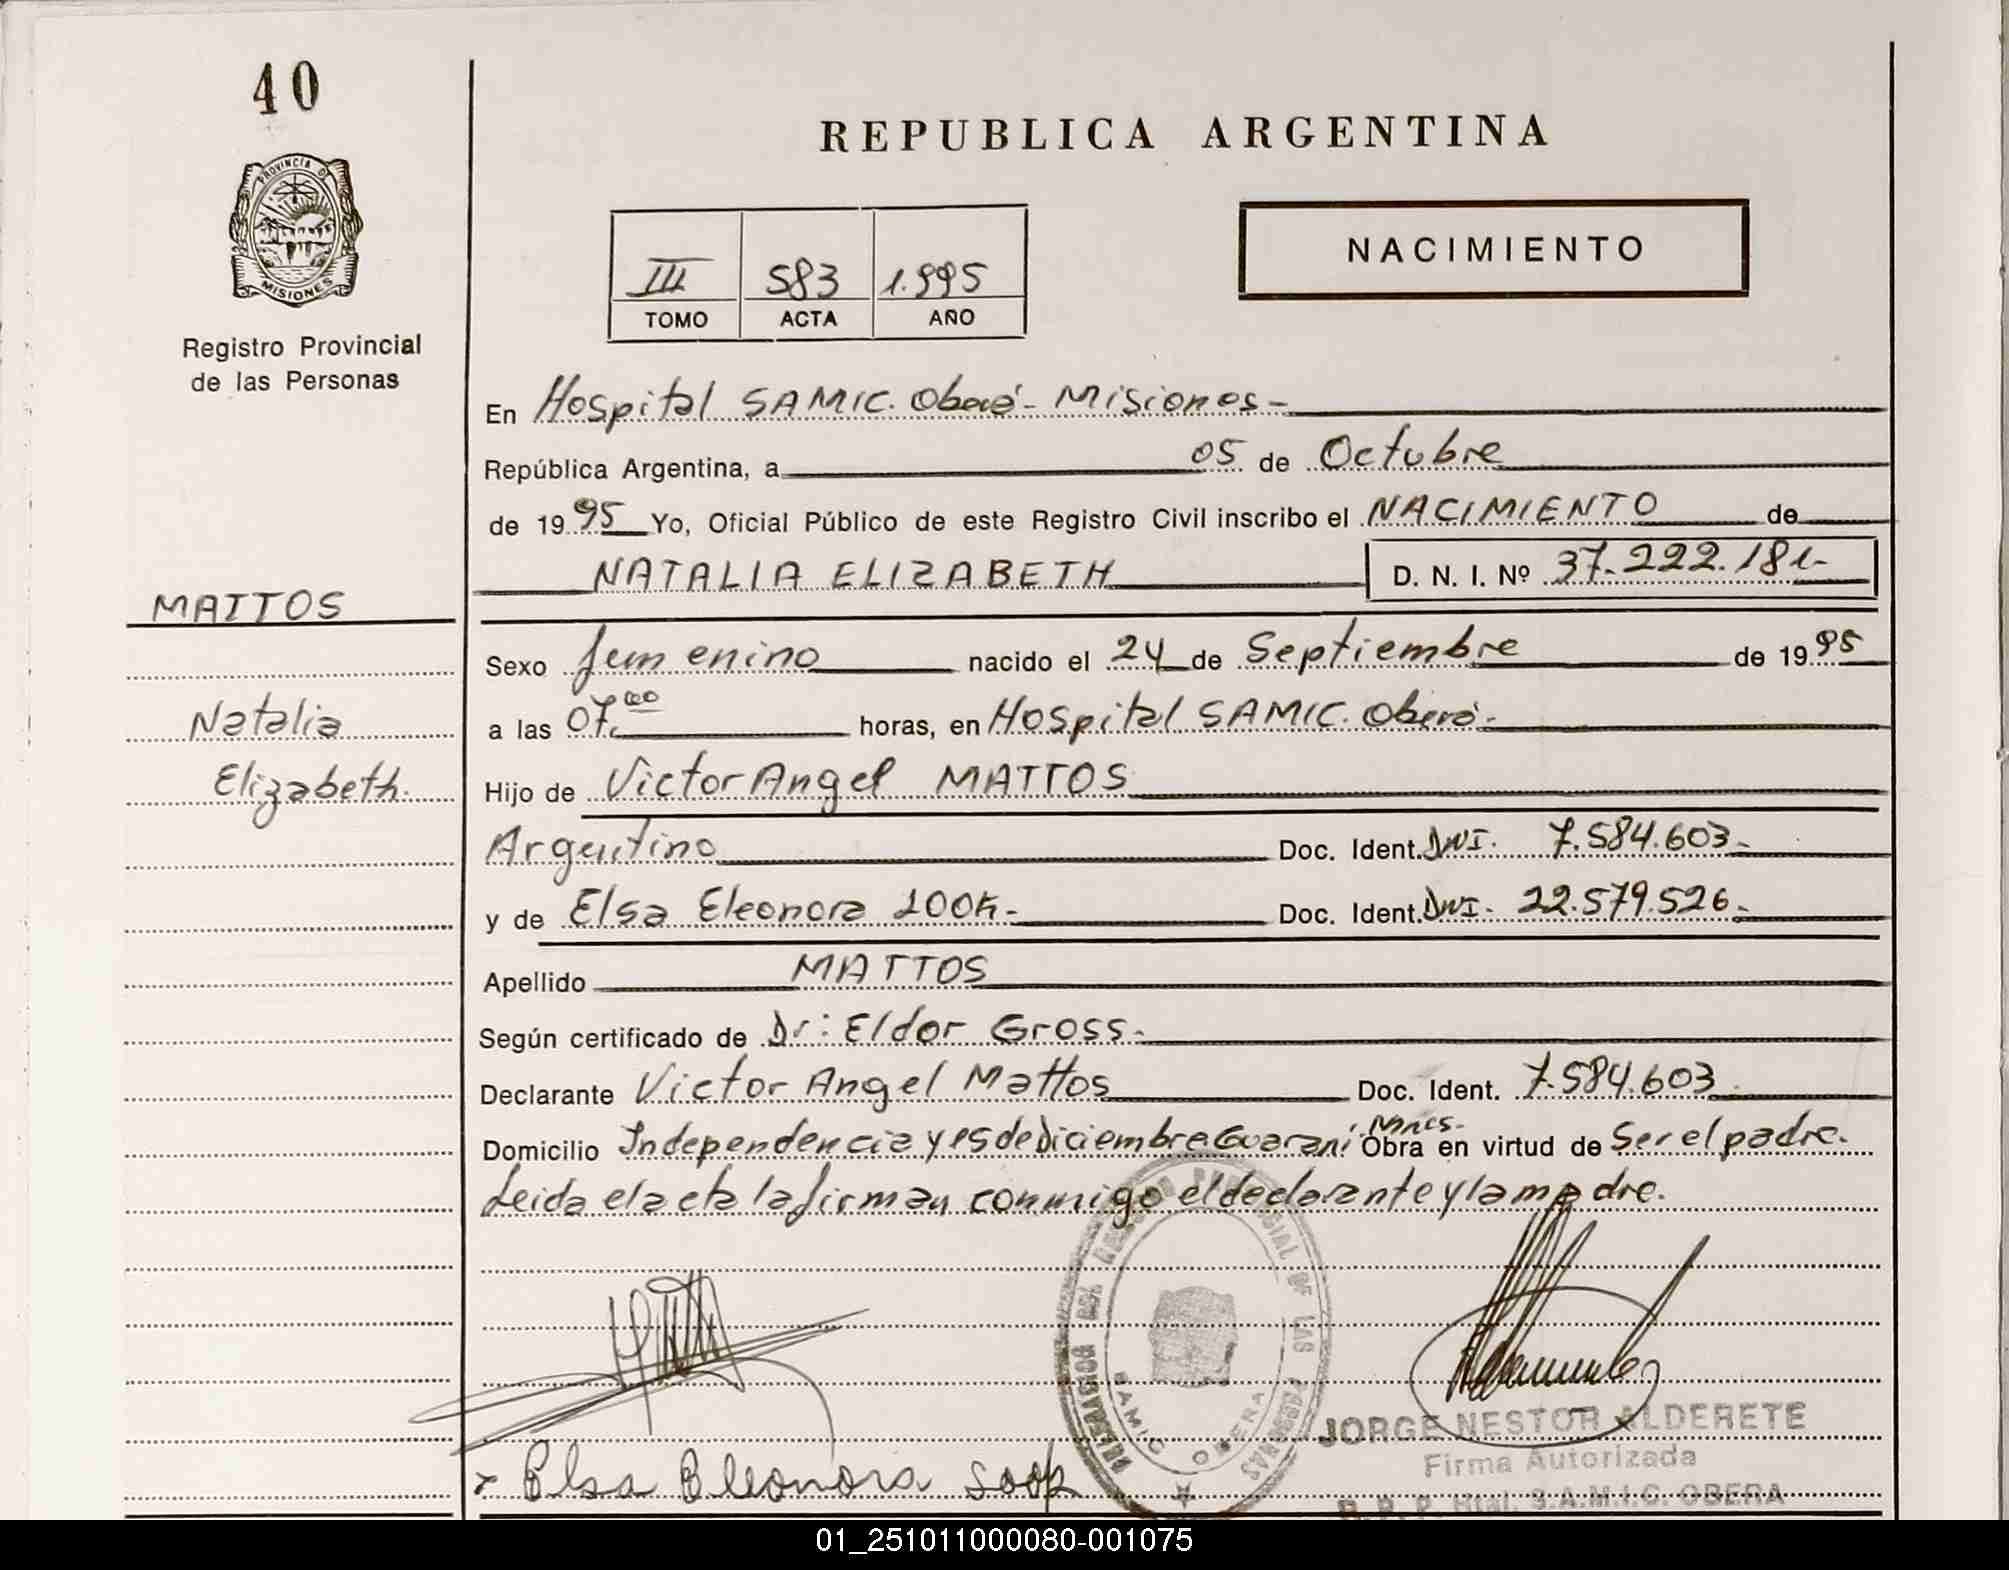 40
REPUBLICA ARGENTINA
PROVINCIA DE
MISIONES
III 583 1.995
TOMO ACTA AÑO
NACIMIENTO
Registro Provincial
de las Personas
En Hospital SAMIC. Oberá - Misiones -
República Argentina, a 05 de Octubre
de 1995 Yo, Oficial Público de este Registro Civil inscribo el NACIMIENTO de
NATALIA ELIZABETH D. N. I. Nº 37.222.181-
MATTOS
Sexo femenino nacido el 24 de Septiembre de 1995
Natalia
a las 07.00 horas, en Hospital SAMIC. Oberá-
Elizabeth.
Hijo de Victor Angel MATTOS
Argentino Doc. Ident. DNI. 7.584.603-
y de Elsa Eleonora Doc. Ident. DNI- 22.579.526-
Apellido MATTOS
Según certificado de Dr: Eldor Gross-
Declarante Victor Angel Mattos Doc. Ident. 7.584.603
Domicilio Independencia y de Diciembre Guaraní Mnes- Obra en virtud de Ser el padre.
Leida el acta la firman conmigo el declarante y la madre.
REGISTRO PROVINCIAL DE LAS PERSONAS
SAMIC OBERA
JORGE NESTOR ALDERETE
Firma Autorizada
R. P. P. Htal. S.A.M.I.C. OBERA
Elsa Eleonora
01_251011000080-001075